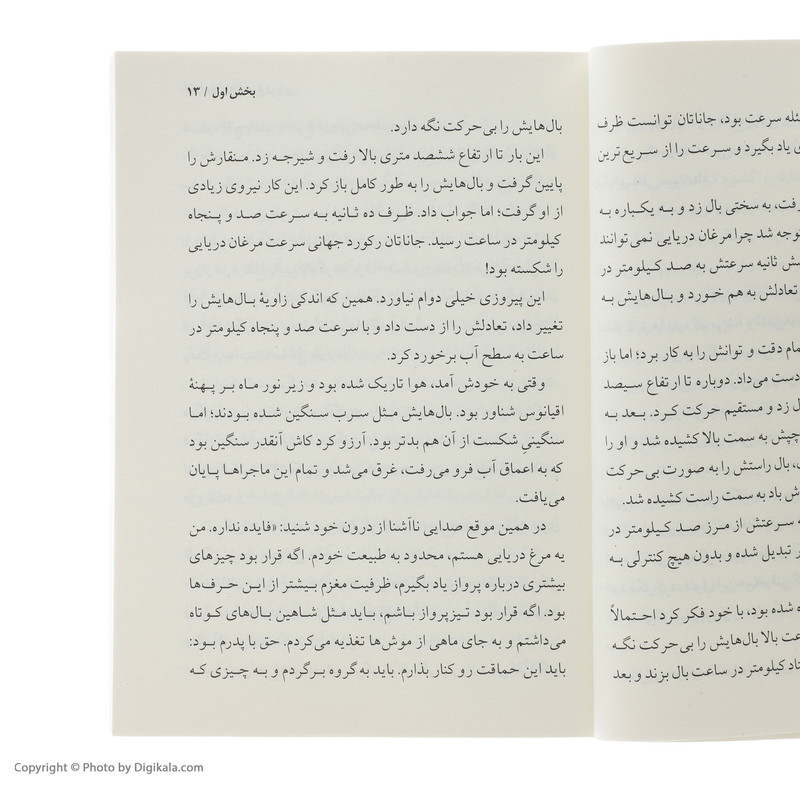 سرعت بود، جاناتان توانست ظرف
یاد بگیرد و سرعت را از سریع ترین
به سختی بال زد و به یکباره به
شد چرا مرغان دریایی نمی‌توانند
ثانیه سرعتش به صد کیلومتر در
تعادلش به هم خورد و بال‌هایش به
دقت و توانش را به کار برد؛ اما باز
دست می‌داد. دوباره تا ارتفاع سیصد
زد و مستقیم حرکت کرد. بعد به
به سمت بالا کشیده شد و او را
بال راستش را به صورت بی‌حرکت
باد به سمت راست کشیده شد.
سرعتش از مرز صد کیلومتر در
تبدیل شده و بدون هیچ کنترلی به
شده بود، با خود فکر کرد احتمالاً
بالا بال‌هایش را بی‌حرکت نگه
کیلومتر در ساعت بال بزند و بعد
بخش اول / ۱۳
بال‌هایش را بی‌حرکت نگه دارد.
این بار تا ارتفاع ششصد متری بالا رفت و شیرجه زد. منقارش را
پایین گرفت و بال‌هایش را به طور کامل باز کرد. این کار نیروی زیادی
از او گرفت؛ اما جواب داد. ظرف ده ثانیه به سرعت صد و پنجاه
کیلومتر در ساعت رسید. جاناتان رکورد جهانی سرعت مرغان دریایی
را شکسته بود!
این پیروزی خیلی دوام نیاورد. همین که اندکی زاویهٔ بال‌هایش را
تغییر داد، تعادلش را از دست داد و با سرعت صد و پنجاه کیلومتر در
ساعت به سطح آب برخورد کرد.
وقتی به خودش آمد، هوا تاریک شده بود و زیر نور ماه بر پهنهٔ
اقیانوس شناور بود. بال‌هایش مثل سرب سنگین شده بودند؛ اما
سنگینیِ شکست از آن هم بدتر بود. آرزو کرد کاش آنقدر سنگین بود
که به اعماق آب فرو می‌رفت، غرق می‌شد و تمام این ماجراها پایان
می‌یافت.
در همین موقع صدایی ناآشنا از درون خود شنید: «فایده نداره. من
یه مرغ دریایی هستم، محدود به طبیعت خودم. اگه قرار بود چیزهای
بیشتری درباره پرواز یاد بگیرم، ظرفیت مغزم بیشتر از این حرف‌ها
بود. اگه قرار بود تیزپرواز باشم، باید مثل شاهین بال‌های کوتاه
می‌داشتم و به جای ماهی از موش‌ها تغذیه می‌کردم. حق با پدرم بود:
باید این حماقت رو کنار بذارم. باید به گروه برگردم و به چیزی که
Copyright © Photo by Digikala.com